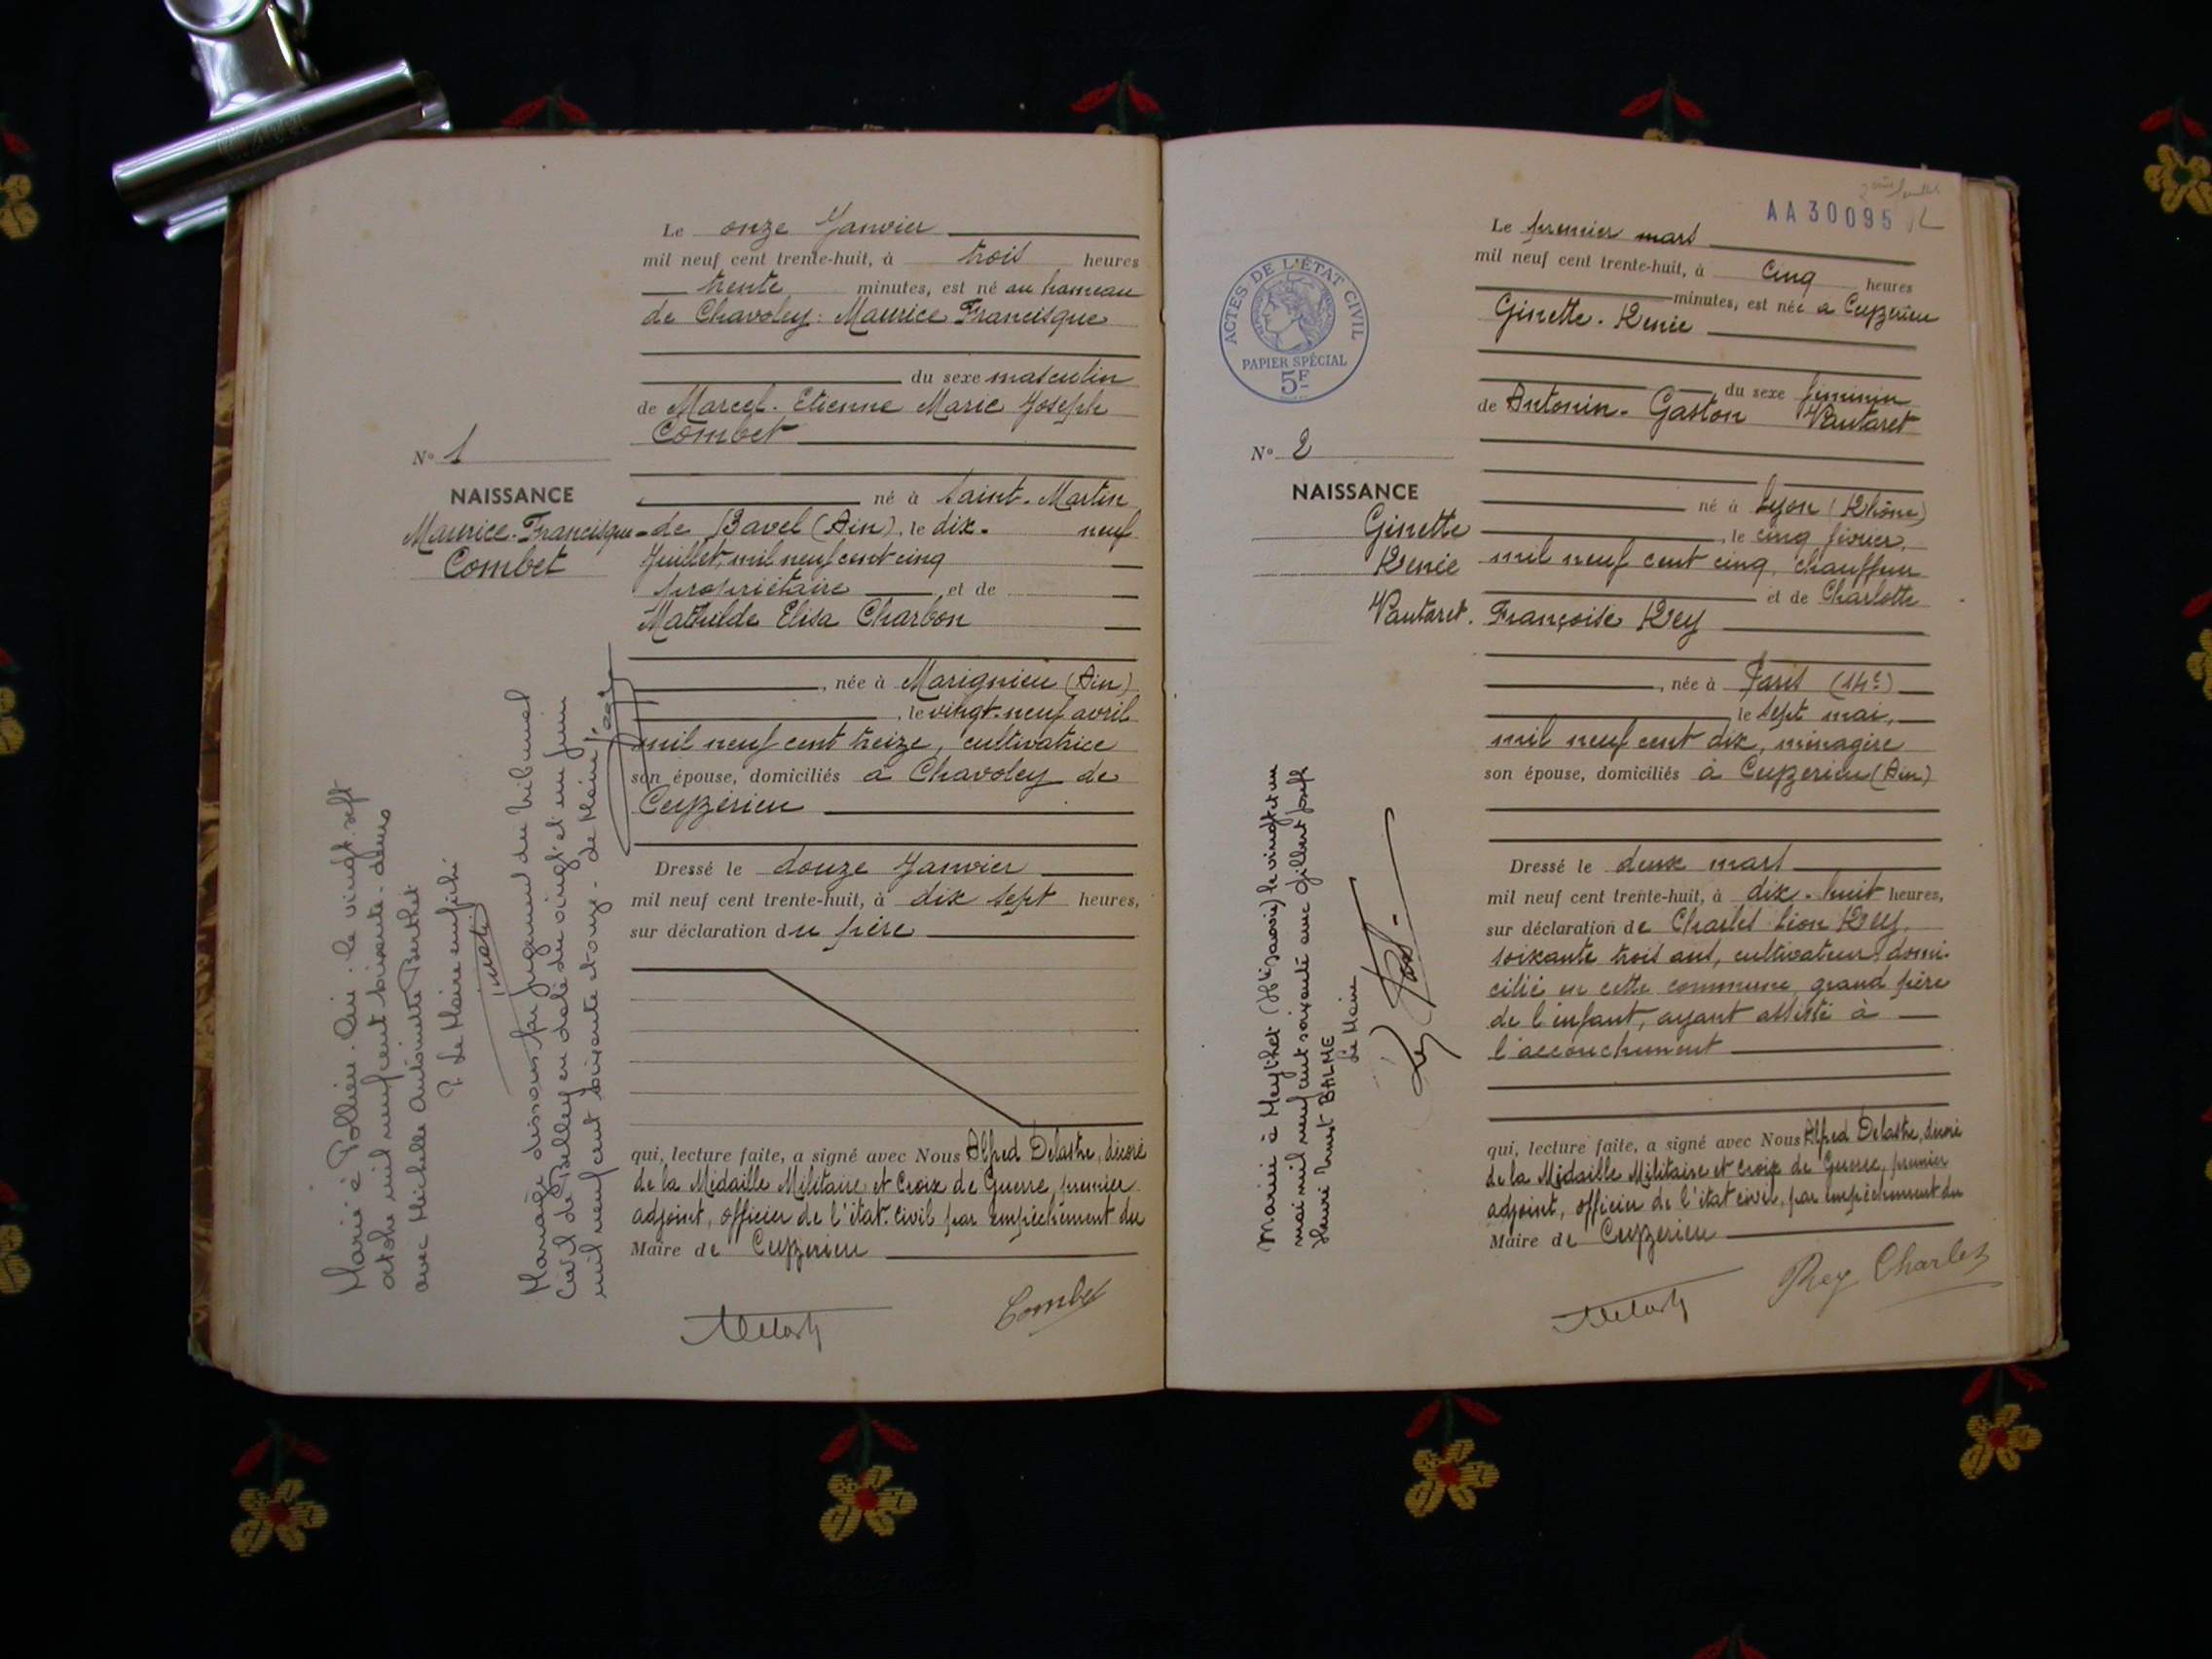 Le onze Janvier
mil neuf cent trente-huit, à trois heures
trente minutes, est né au hameau
de Chavoley: Maurice Francisque
du sexe masculin
de Marcel-Etienne Marie Joseph
Combet
né à Saint-Martin
de Bavel (Ain), le dix-neuf
Juillet, mil neuf cent cinq
propriétaire et de
Mathilde Elisa Charbon
, née à Marignieu (Ain)
, le vingt-neuf avril
mil neuf cent treize, cultivatrice
son épouse, domiciliés à Chavoley de
Ceyzérieu
Dressé le douze Janvier
mil neuf cent trente-huit, à dix sept heures,
sur déclaration du père
qui, lecture faite, a signé avec Nous Alfred Delastre, décoré
de la Médaille Militaire et Croix de Guerre, premier
adjoint, officier de l'état-civil par empêchement du
Maire de Ceyzerieu
Combet
N° 1
NAISSANCE
Maurice-Francisque
Combet
Marié à Pollieu. Ain. le vingt sept
octobre mil neuf cent soixante-deux
avec Michelle Antoinette Berthet
P. Le Maire empêché
Mariage dissous par jugement du Tribunal
Civil de Belley en date du vingt et un juin
mil neuf cent soixante et onze - Le Maire
AA30095
Le premier mars
mil neuf cent trente-huit, à cinq heures
minutes, est née à Ceyzerieu
Ginette-Renée
du sexe féminin
de Antonin-Gaston Vautaret
né à Lyon (Rhône)
, le cinq février,
mil neuf cent cinq, chauffeur
et de Charlotte
Françoise Rey
, née à Paris (14e)
le sept mai,
mil neuf cent dix, ménagère
son épouse, domiciliés à Ceyzerieu (Ain)
Dressé le deux mars
mil neuf cent trente-huit, à dix-huit heures,
sur déclaration de Charles Léon Rey,
soixante trois ans, cultivateur, domi-
cilié en cette commune, grand père
de l'enfant, ayant assisté à
l'accouchement
qui, lecture faite, a signé avec Nous Alfred Delastre, décoré
de la Médaille Militaire et croix de Guerre, premier
adjoint, officier de l'état civil, par empêchement du
Maire de Ceyzerieu
Rey Charles
ACTES DE L'ÉTAT CIVIL
PAPIER SPÉCIAL
5F
N° 2
NAISSANCE
Ginette
Renée
Vautaret.
Mariée à Meythet (Hte Savoie) le vingt et un
mai mil neuf cent soixante avec Gilbert Joseph
Henri Ernest BALME
Le Maire